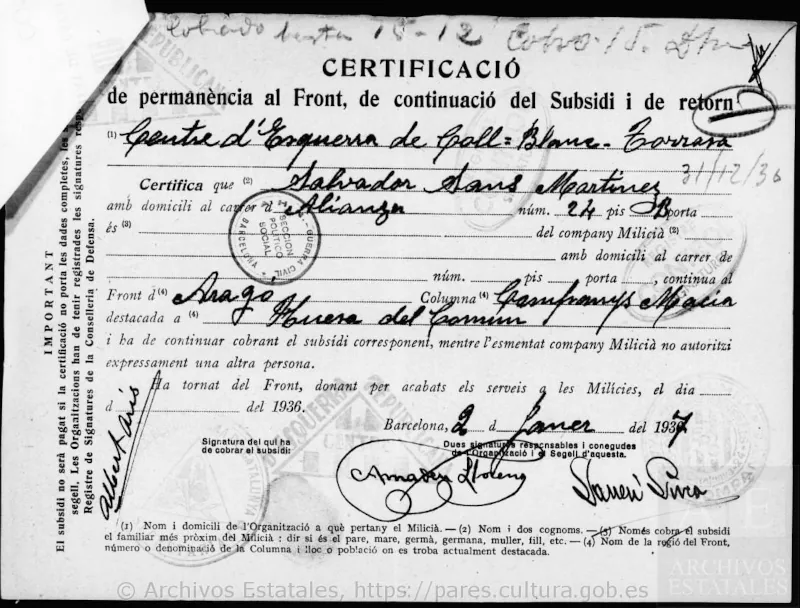 Cobrado hasta 15-12 Cobro 15.
CERTIFICACIÓ
de permanència al Front, de continuació del Subsidi i de retorn
(1) Centre d'Esquerra de Coll=Blanc-Torrasa
31/12/36
Certifica que (2) Salvador Sans Martinez
amb domicili al carrer d Alianza núm. 24 pis B porta
és (3) del company Milicià (2)
amb domicili al carrer de
núm. pis porta , continua al
Front d (4) Aragó Columna (4) Companys Macia
destacada a (4) Huesa del Comun
i ha de continuar cobrant el subsidi corresponent, mentre l'esmentat company Milicià no autoritzi
expressament una altra persona.
Ha tornat del Front, donant per acabats els serveis a les Milícies, el dia
d del 1936.
Barcelona, 2 d Janer del 1937
Signatura del qui ha
de cobrar el subsidi:
Dues signatures responsables i conegudes
de l'Organització i el Segell d'aquesta.
Amadeu Llorens
(1) Nom i domicili de l'Organització a què pertany el Milicià. — (2) Nom i dos cognoms. — (3) Només cobra el subsidi
el familiar més pròxim del Milicià : dir si és el pare, mare, germà, germana, muller, fill, etc. — (4) Nom de la regió del Front,
número o denominació de la Columna i lloc o població on es troba actualment destacada.
IMPORTANT
El subsidi no serà pagat si la certificació no porta les dades completes, les
segell. Les Organitzacions han de tenir registrades les signatures resp
Registre de Signatures de la Conselleria de Defensa.
GUERRA CIVIL
SECCION
POLITICO
SOCIAL
BARCELONA
© Archivos Estatales, https://pares.cultura.gob.es
ARCHIVOS
ESTATALES